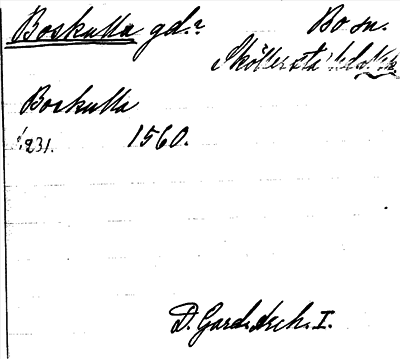 Boskulla gd.? Bo sn.
Sköllersta hd
Boskulla
1560.
D. Gardedsch. I.